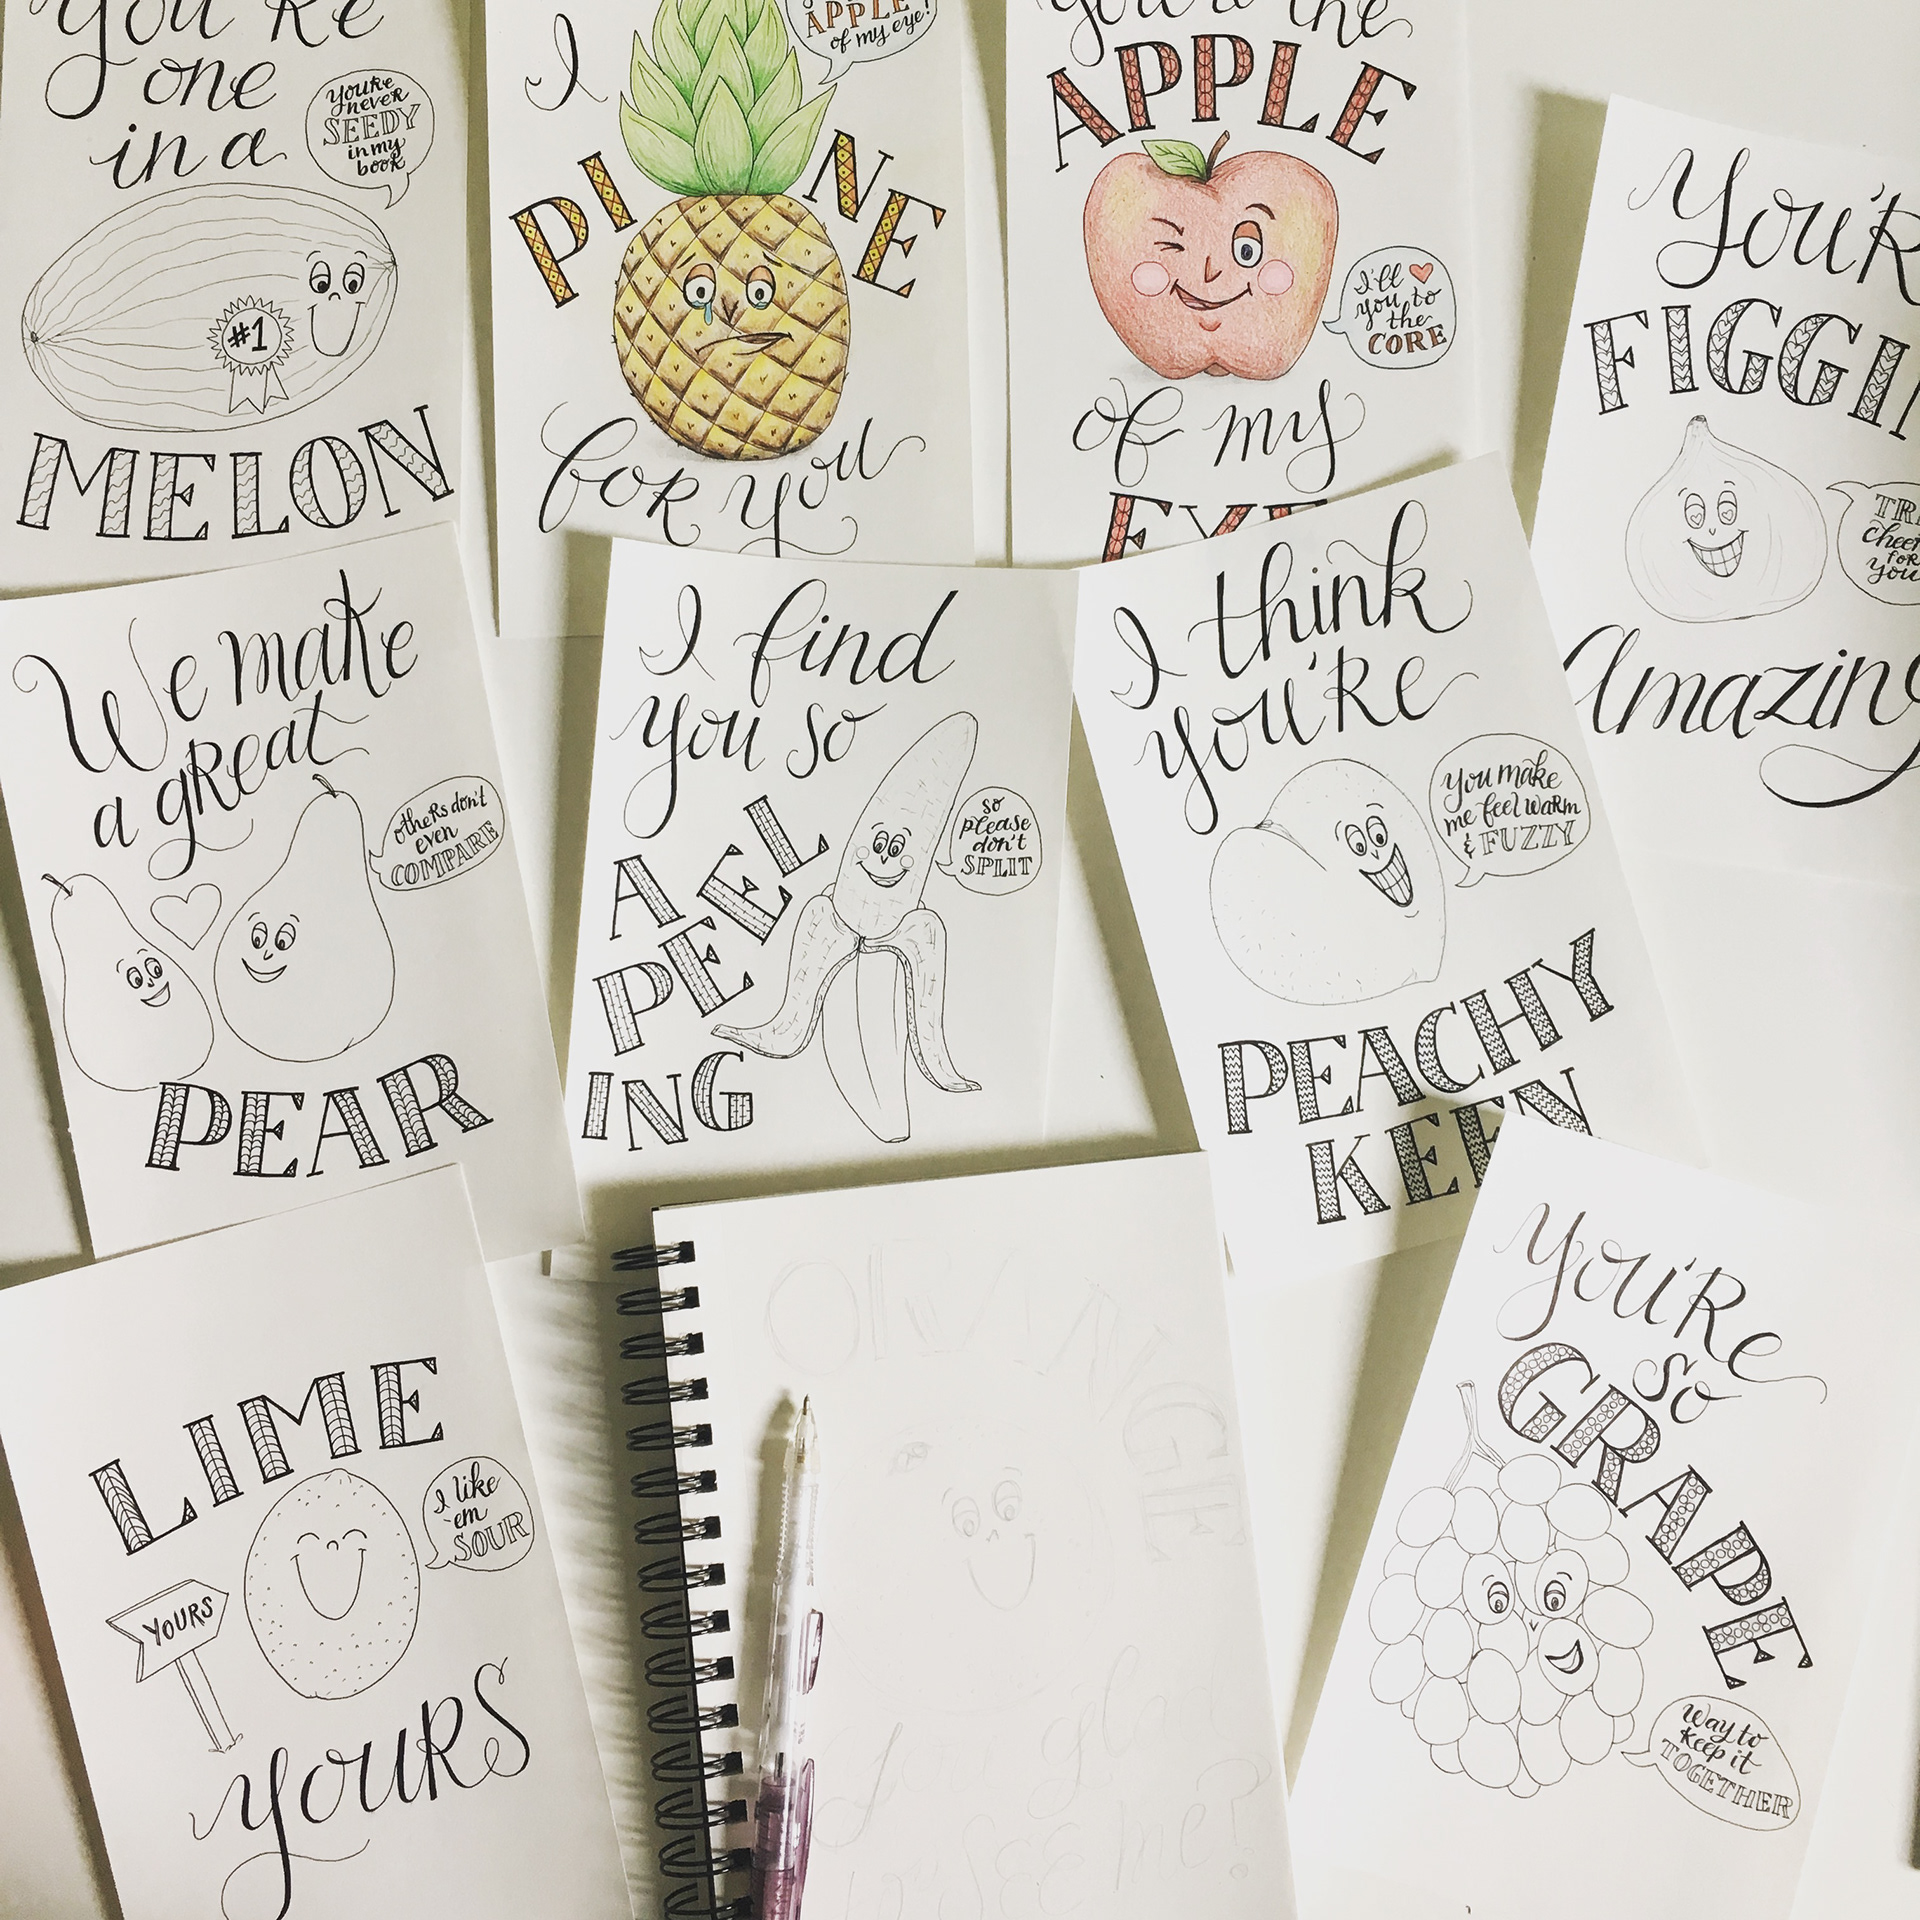 You're
one
in a
you're
never
SEEDY
in my
book
#1
MELON
I
APPLE
of my eye!
PINE
for you
you're the
APPLE
I'll ♥
you to
the
CORE
of my
EYE
You'r
FIGGIN
TR
cheer
for
you
Amazing
We make
a great
others don't
even
COMPARE
PEAR
I find
you so
so
please
don't
SPLIT
A
PEEL
ING
I think
you're
You make
me feel warm
& FUZZY
PEACHY
KEEN
LIME
I like
'em
SOUR
YOURS
yours
ORANGE
you glad
to SEE me?
You're
so
GRAPE
Way to
keep it
TOGETHER